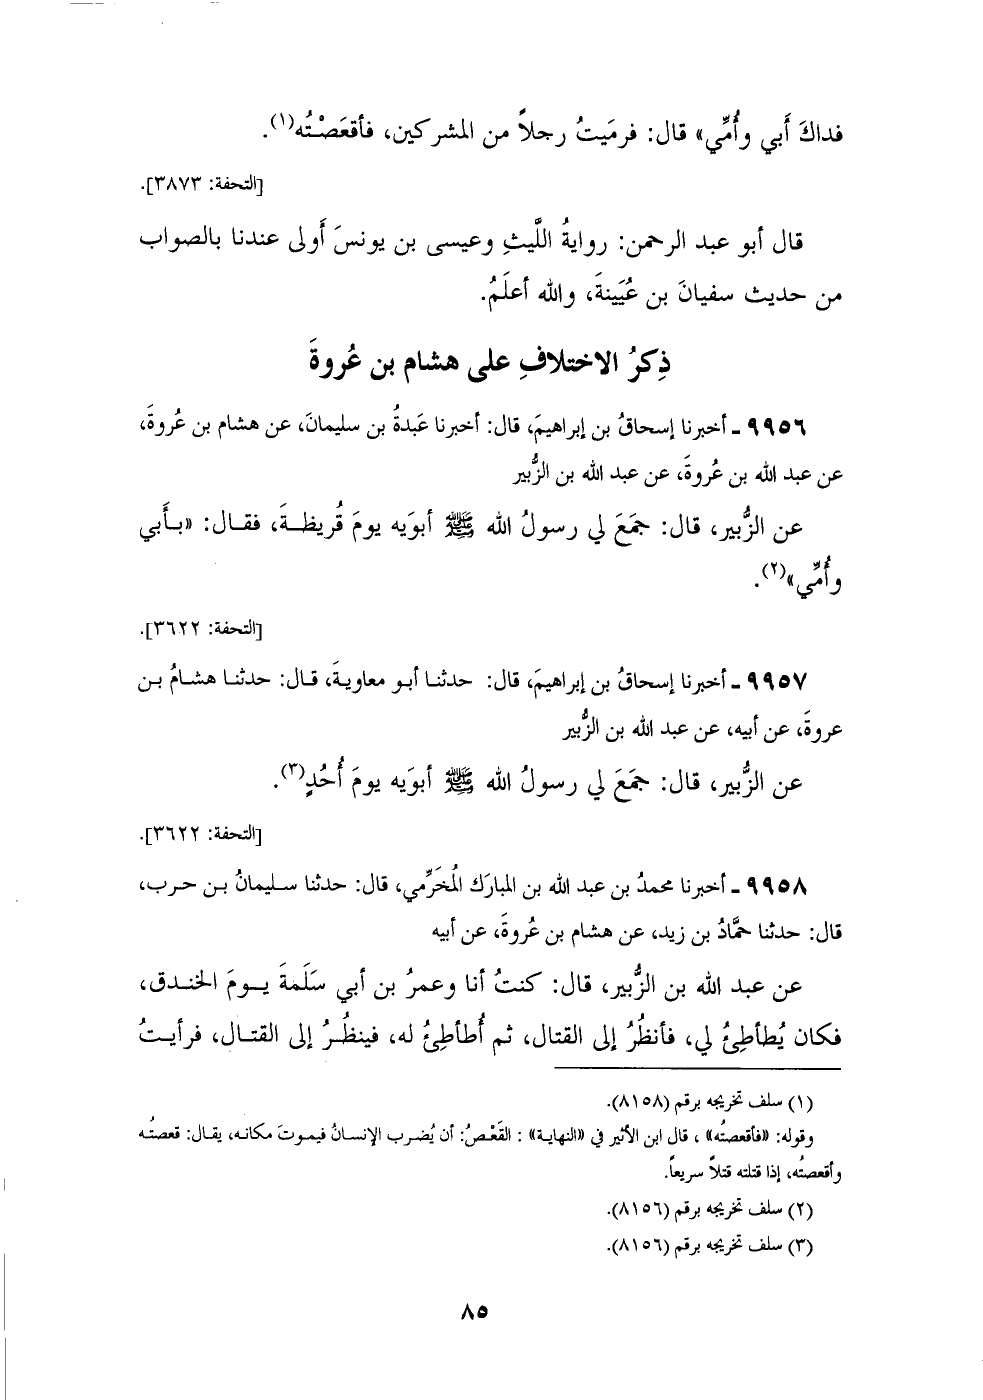 فداكَ أَبي وأُمِّي» قال: فرمَيتُ رجلاً من المشركين، فأقعَصْتُه(١).
[التحفة: ٣٨٧٣].
قال أبو عبد الرحمن: روايةُ اللَّيثِ وعيسى بن يونسَ أَولى عندنا بالصواب
من حديث سفيانَ بن عُيَينةَ، والله أعلَمُ.
ذِكرُ الاختلافِ على هشام بن عُروةَ
٩٩٥٦ ـ أخبرنا إسحاقُ بن إبراهيمَ، قال: أخبرنا عَبدةُ بن سليمانَ، عن هشام بن عُروةَ،
عن عبد الله بن عُروةَ، عن عبد الله بن الزُّبير
عن الزُّبير، قال: جمَعَ لي رسولُ الله ﷺ أبوَيه يومَ قُريظـةَ، فقـال: «بـأَبي
وأُمِّي»(٢).
[التحفة: ٣٦٢٢].
٩٩٥٧ ـ أخبرنا إسحاقُ بن إبراهيمَ، قال: حدثنـا أبـو معاويـةَ، قـال: حدثنـا هشـامُ بـن
عروةَ، عن أبيه، عن عبد الله بن الزُّبير
عن الزُّبير، قال: جمَعَ لي رسولُ الله ﷺ أبوَيه يومَ أُحُدٍ(٣).
[التحفة: ٣٦٢٢].
٩٩٥٨ ـ أخبرنا محمدُ بن عبد الله بن المبارَك المُخَرِّمي، قال: حدثنا سـليمانُ بـن حـرب،
قال: حدثنا حمَّادُ بن زيد، عن هشام بن عُروةَ، عن أبيه
عن عبد الله بن الزُّبير، قال: كنتُ أنا وعمرُ بن أبي سَلَمةَ يـومَ الخنـدق،
فكان يُطأطِئُ لي، فأنظُرُ إلى القتال، ثم أُطأطِئُ له، فينظُـرُ إلى القتـال، فرأيـتُ
(١) سلف تخريجه برقم (٨١٥٨).
وقوله: «فأقعصتُه» ، قال ابن الأثير في «النهاية» : القَعْصُ: أن يُضرب الإنسانُ فيموتَ مكانـه، يقـال: قعصتُـه
وأقعصتُه، إذا قتلته قتلاً سريعاً.
(٢) سلف تخريجه برقم (٨١٥٦).
(٣) سلف تخريجه برقم (٨١٥٦).
٨٥